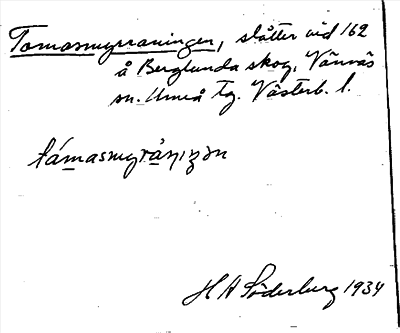 Tomasmyrraningen, slåtter vid 162
å Berglunda skog, Vännäs
sn. Umeå tg. Västerb. l.
támasmyråniŋən
H A Söderberg 1934